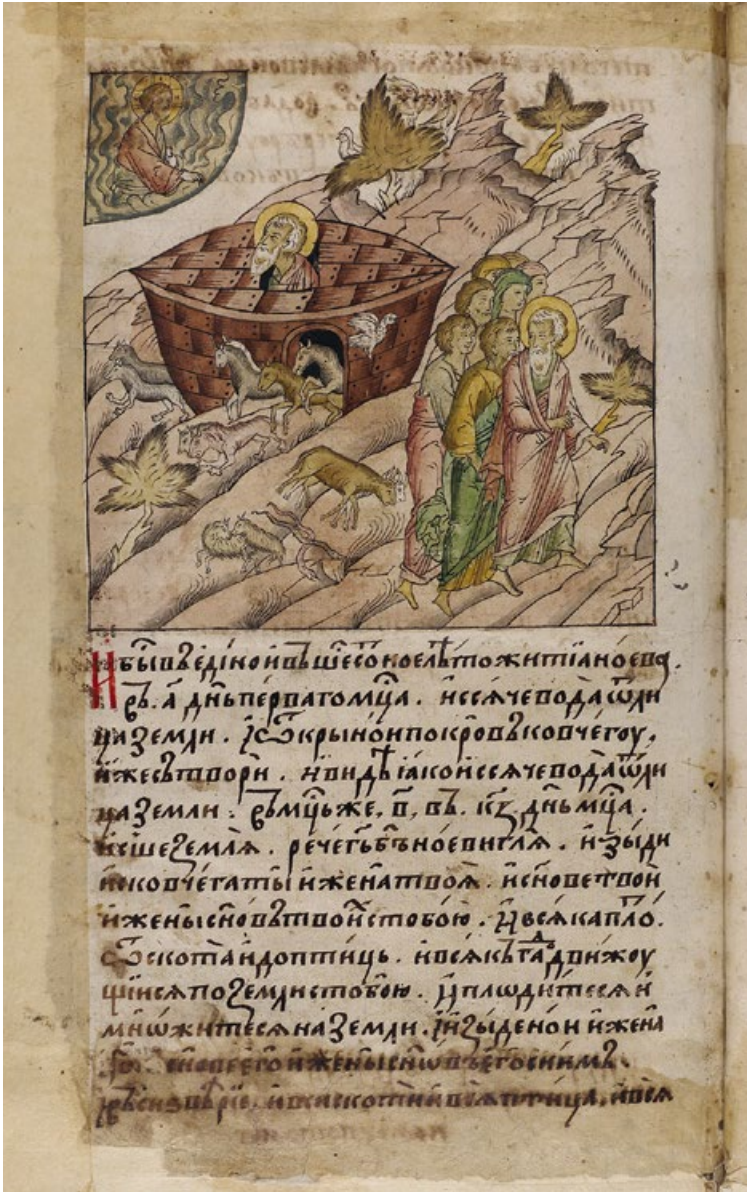 И бы́въ є҆ди́нои въ шесо́ноє лѣ́то житїа̀ но́ева.
въ. а҃ дн҃ь пе́рваго мц҃а. и҆ссяче вода̀ ѿ ли
ца земли . и҆ ѿкры но́и покро́въ ковче́гоу,
и҆́же сътвори̂ . и҆ ви́дѣ ꙗ҆́ко и҆ссяче вода̀ ѿ ли
ца земли : въ мц҃ь же, в҃, въ. к҃з дн҃ь мц҃а .
и҆сше земля̀ . рече гь҃ бъ҃ но́еви гл҃я . и҆зы́ди
ис ковче́га ты и҆ жена̀ твоѧ̀ . и҆ сн҃ове твои̂
и҆ жены сн҃овъ твои́хъ с тобо́ю . и҆ вся́ка пло́.
ѿ скота̀ и҆ до птиць . и҆ всякъ га́дъ движоу
щїися по земли с тобо́ю . и҆ плоди́теся и҆
мно́жи́теся на земли . и҆ и҆зы́де но́и и҆ жена
сн҃ове є҆го̀ и҆ жены сн҃овъ є҆го̀ с ни́мъ .
и҆ вси скоти и҆ вся птица, и҆ вся